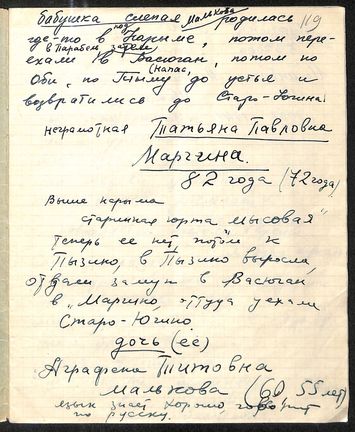 бабушка слепая Малькова родилась 119
где-то в под Нарыме, потом пере-
в Парабель затем
ехали в Васюган, потом по
(Напас,
Оби, по Тыму до устья и
возвратились до Старо-Югина
неграмотная Татьяна Павловна
Маргина.
82 года (72 года)
Выше нарыма
старинная юрта мысовая"
Теперь ее нет, потом к
Пызино, в Пызино выросла,
отдали замуж в Васюган,
в "Маргино. Оттуда уехали
Старо-Югино.
дочь (её)
Аграфена Титовна
малькова (60 55 лет)
язык знает хорошо говорит
по русску.